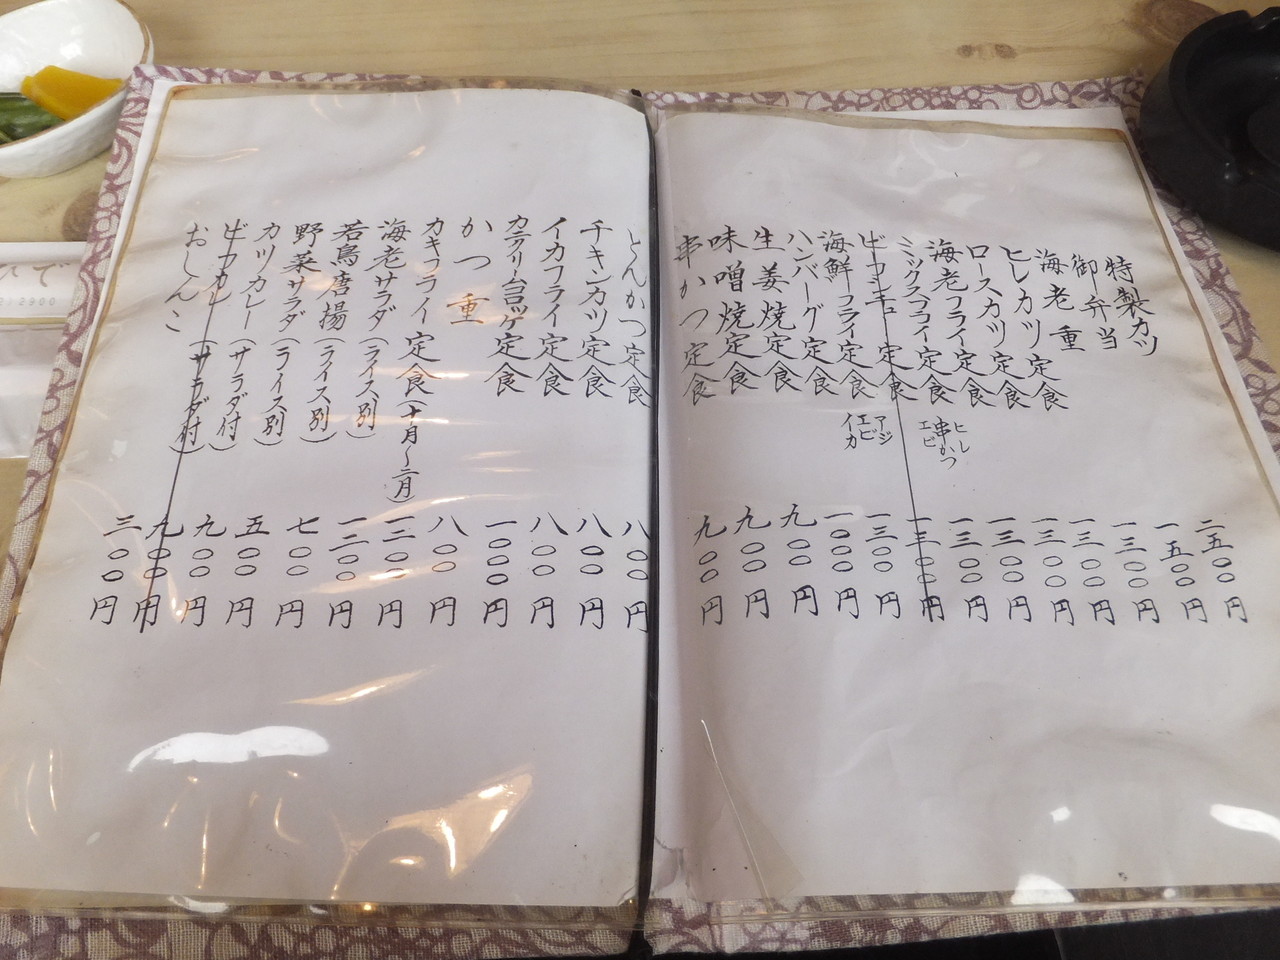 特製カツ 二五〇〇円
御弁当 一五〇〇円
海老重 一三〇〇円
ヒレカツ定食 一三〇〇円
ロースカツ定食 一三〇〇円
海老フライ定食 一三〇〇円
ミックスフライ定食 ヒレ 串かつ エビ 一三〇〇円
ビーフシチュー定食 一三〇〇円
海鮮フライ定食 アジ エビ イカ 一三〇〇円
ハンバーグ定食 一〇〇〇円
生姜焼定食 九〇〇円
味噌焼定食 九〇〇円
串かつ定食 九〇〇円
とんかつ定食 八〇〇円
チキンカツ定食 八〇〇円
イカフライ定食 八〇〇円
カニクリームコロッケ定食 一〇〇〇円
かつ重 八〇〇円
カキフライ定食(十月〜二月) 一三〇〇円
海老サラダ(ライス別) 一二〇〇円
若鳥唐揚(ライス別) 七〇〇円
野菜サラダ(ライス別) 五〇〇円
カツカレー(サラダ付) 九〇〇円
ビーフカレー(サラダ付) 九〇〇円
おしんこ 三〇〇円